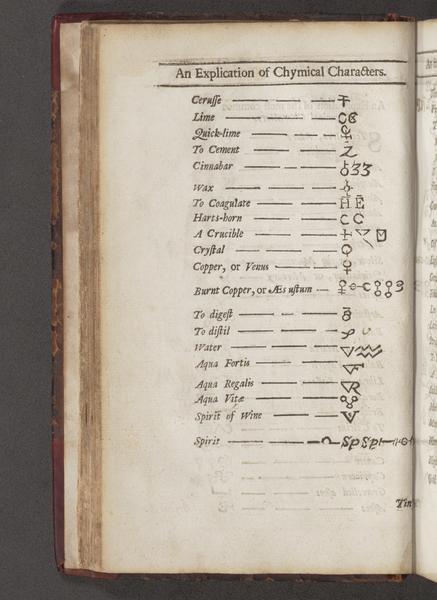 An Explication of Chymical Characters.
Ceruſſe
Lime
Quick-lime
To Cement
Cinnabar
Wax
To Coagulate
Harts-horn
A Crucible
Cryſtal
Copper, or Venus
Burnt Copper, or Æs uſtum
To digeſt
To diſtil
Water
Aqua Fortis
Aqua Regalis
Aqua Vitæ
Spirit of Wine
Spirit
Tin